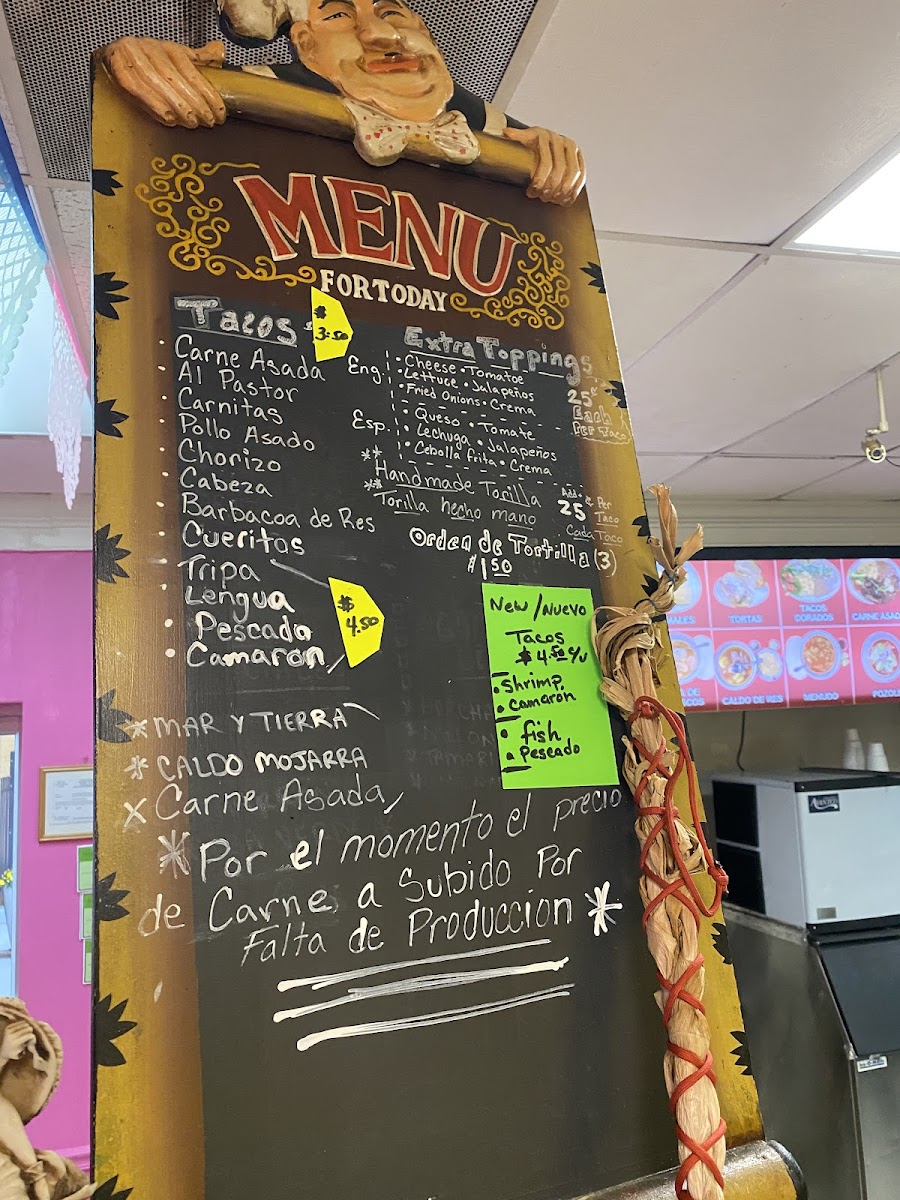 MENU
FOR TODAY
Tacos
$
3.50
Carne Asada
Al Pastor
Carnitas
Pollo Asado
Chorizo
Cabeza
Barbacoa de Res
Cueritos
Tripa
Lengua
Pescado
Camaron
$
4.50
Extra Toppings
Eng.
• Cheese • Tomatoe
• Lettuce • Jalapeños
• Fried Onions • Crema
25¢
Each
Per Taco
Esp.
• Queso • Tomate
• Lechuga • Jalapeños
• Cebolla frita • Crema
** Handmade Torilla
** Torilla hecho mano
Add
25 ¢ Per
Taco
Cada Taco
Orden de Tortilla (3)
$1.50
New / Nuevo
Tacos
$4.50 c/u
• Shrimp
• Camarón
• fish
• Pescado
* MAR Y TIERRA
* CALDO MOJARRA
x Carne Asada
* Por el momento el precio
de Carne a Subido Por
Falta de Produccion *
TORTAS
TACOS
DORADOS
CARNE ASAD
CALDO DE RES
MENUDO
POZOL